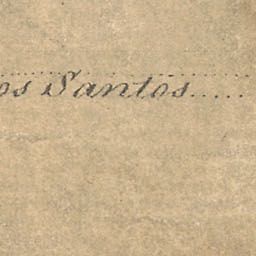 os Santos.....